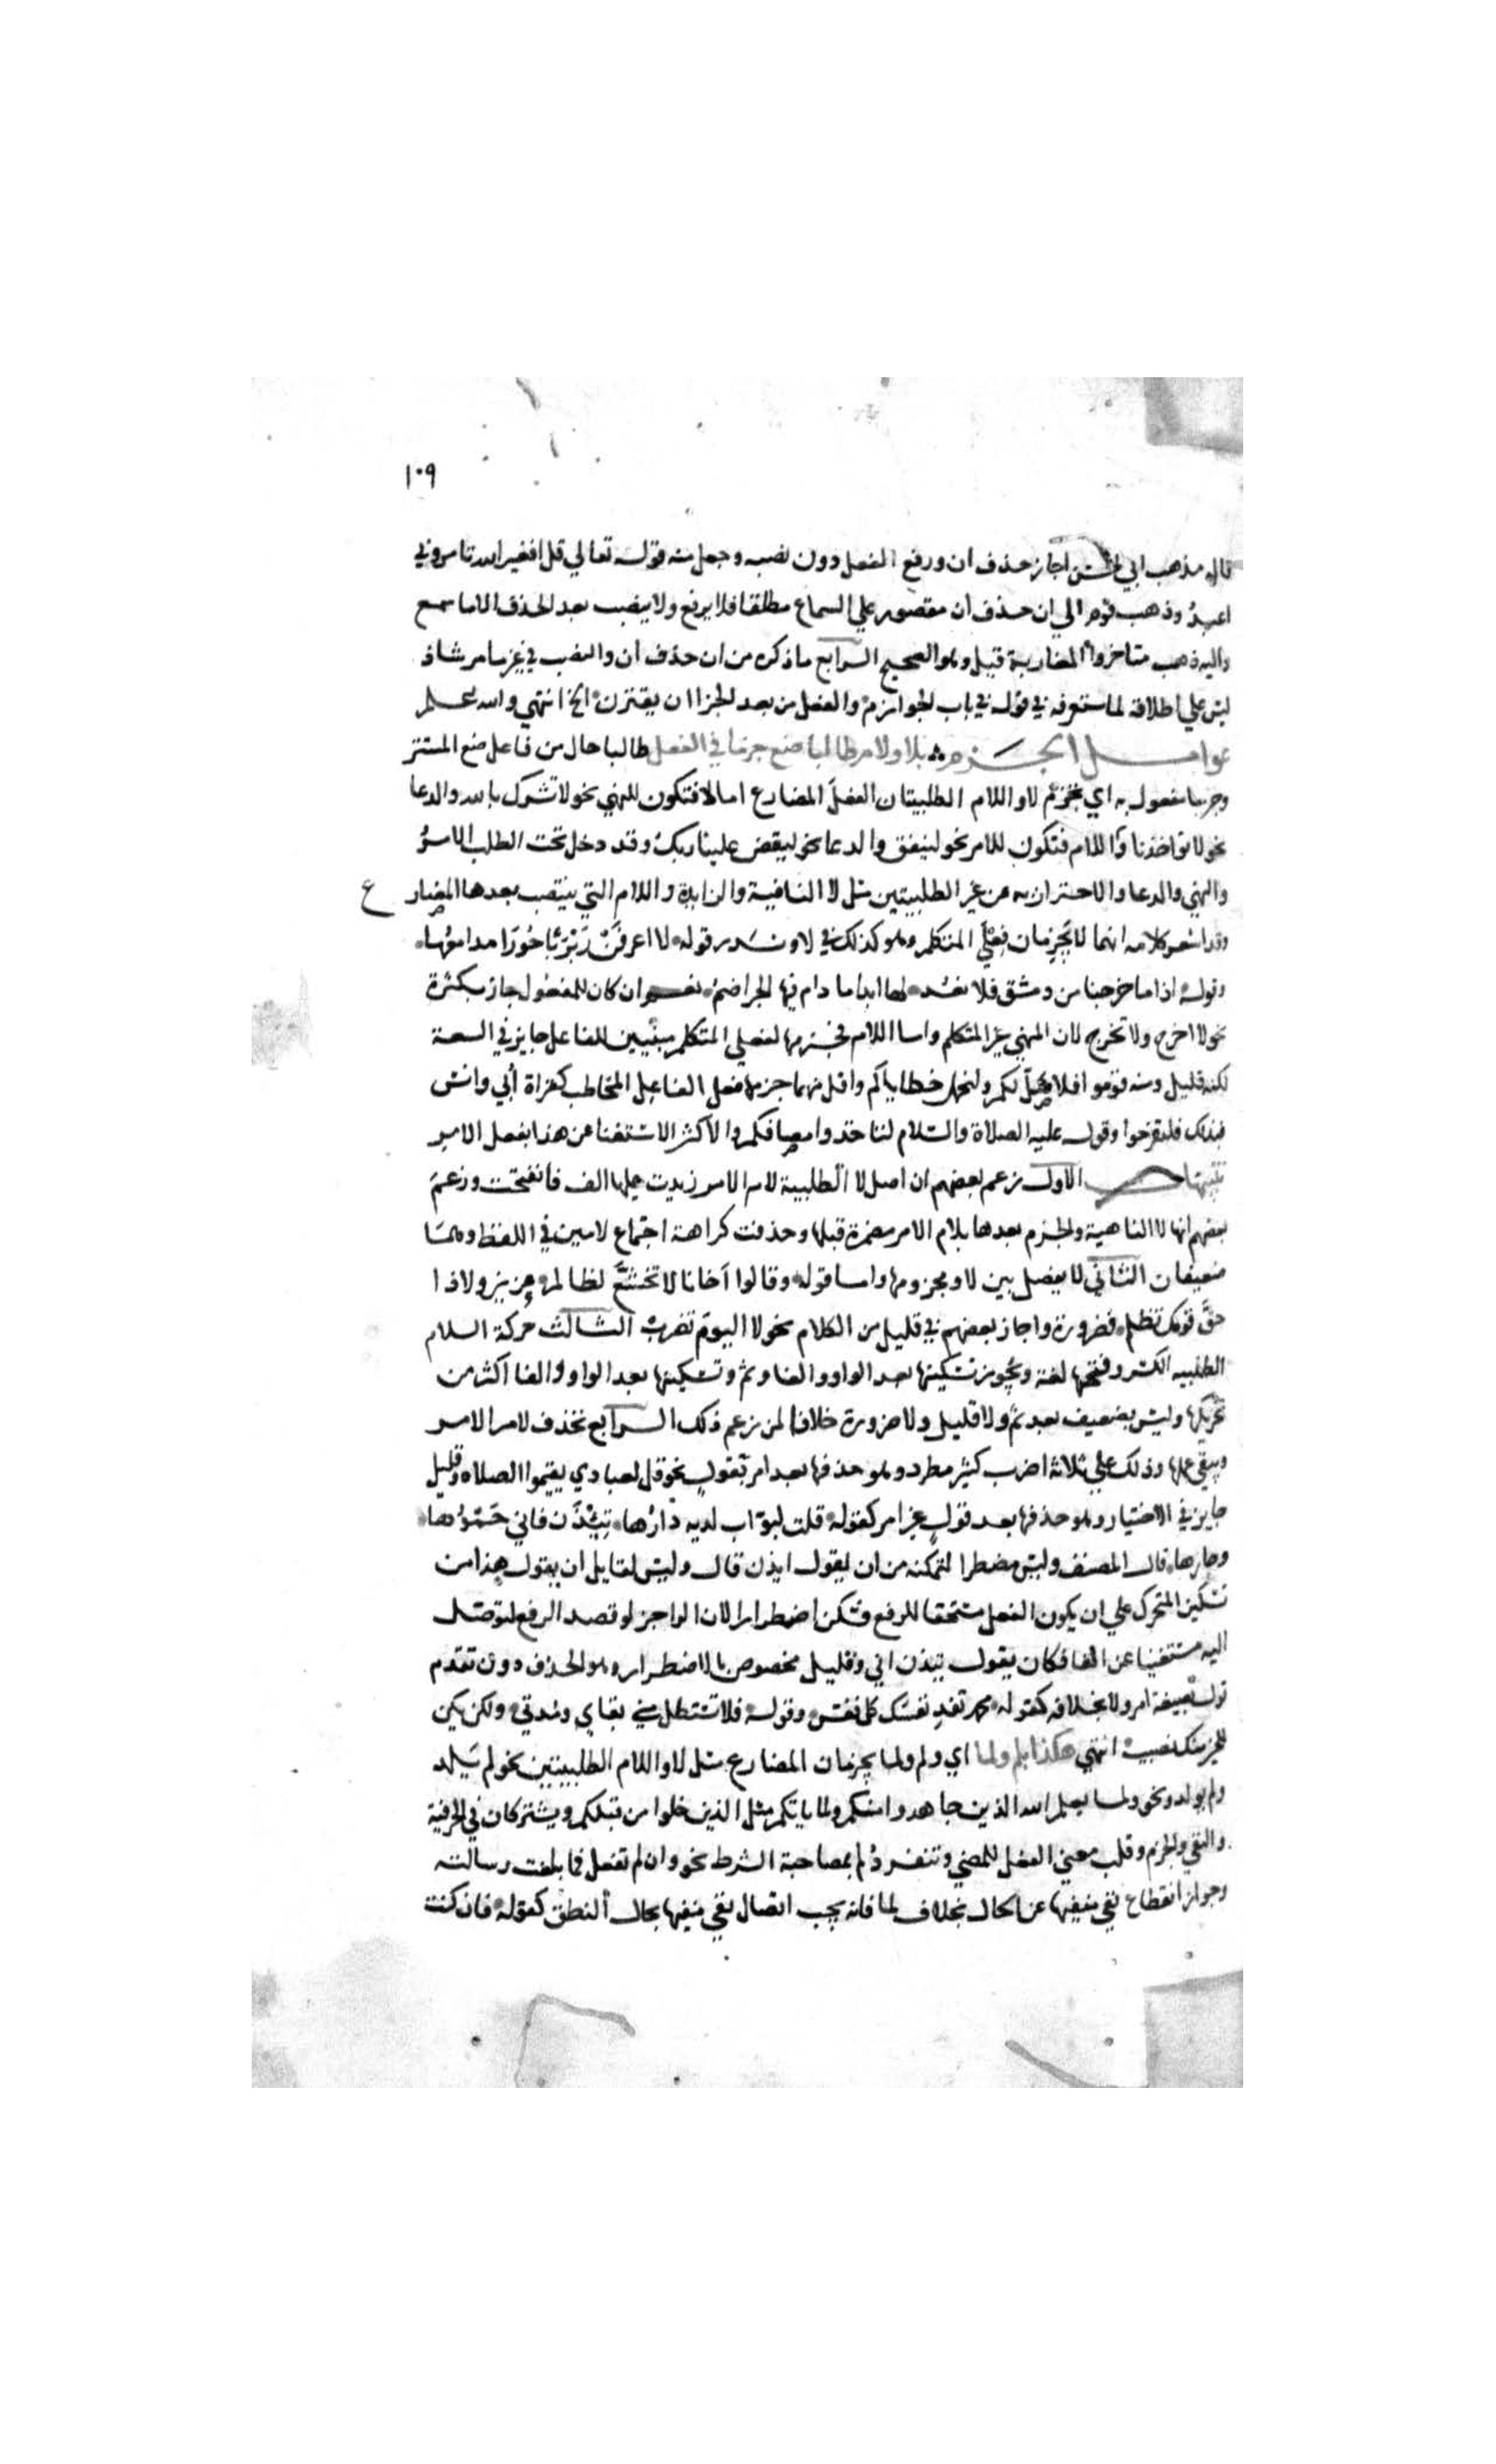 ١٠٩
قال مذهب ابي الحسن اجاز حذف ان ورفع الفعل دون نصبه وجعل منه قوله تعالي قل افغير الله تامروني
اعبدُ وذهب قوم الي ان حذف ان مقصور علي السماع مطلقا فلا يرفع ولا ينصب بعد الحذف الا ما سمع
واليه ذهب متاخروا المغاربة قيل وهو الصحيح الرابع ما ذكره من ان حذف ان والنصب في غير ما مر شاذ
ليس علي اطلاقه لما ستعرفه في قوله في باب الجوازم والفعل من بعد الجزا ان يقترن الخ انتهي والله اعلم
عوامل الجزم بلا ولام طالبا ضع جزما في الفعل طالبا حال من فاعل ضع المستتر
وجزما مفعول به اي تجزم لا واللام الطلبيتان الفعلَ المضارع اما لا فتكون للنهي نحو لا تشرك بالله والدعا
نحو لا تواخذنا واللام فتكون للامر نحو لينفق والدعا نحو ليقض علينا ربك وقد دخل تحت الطلب الامرُ
والنهي والدعا والاحتراز به من غير الطلبيتين مثل لا النافية والزايدة واللام التي ينتصب بعدها المضارع
وقد اشعر كلامه انهما لا يَجزِمان فِعْلَي المتكلم وهو كذلك في لا وندر قوله لا اعرفَنْ رَبْرَبًا حُورًا مدامعُها
وقوله اذا ما خرجنا من دمشق فلا نعُد لها ابدا ما دام فيها الجراضم نعم ان كان للمفعول جاز بكثرة
نحو لا اخرج ولا نخرج لان المنهي غير المتكلم واما اللام فجزمها لفعلي المتكلم مبنيين للفاعل جايز في السعة
لكنه قليل ومنه قوموا فلاصلّ لكم ولنحمل خطاياكم واقل منهما جزمها فعل الفاعل المخاطب كقراة أبي وانس
فبذلك فلتفرحوا وقوله عليه الصلاة والسلام لتاخذوا مصافكم والاكثر الاستغنا عن هذا بفعل الامر
تنبيهات الاول زعم بعضهم ان اصل لا الطلبية لام الامر زيدت عليها الف فانفتحت وزعم
بعضهم انها لا الناهية والجزم بعدها بلام الامر مضمرة قبلها وحذفت كراهة اجتماع لامين في اللفظ وهما
ضعيفان الثاني لا يفصل بين لا ومجزومها واما قوله وقالوا أخانا لا تخشّعْ لظالم عزيز ولا ذا
حقَّ قومك تظلم فضرورة واجاز بعضهم في قليل من الكلام نحو لا اليومَ تضربْ الثالث حركة اللام
الطلبيه الكسر وفتحها لغة ويجوز تسكينها بعد الواو والفا وثم وتسكينها بعد الواو والفا اكثر من
تحريكها وليس بضعيف بعد ثم ولا قليل ولا ضرورة خلافا لمن زعم ذلك الرابع تحذف لام الامر
ويبقي عملها وذلك علي ثلاثة اضرب كثير مطرد وهو حذفها بعد امر بقول نحو قل لعبادي يقيموا الصلاه وقليل
جايز في الاختيار وهو حذفها بعد قول غير امر كقوله قلت لبواب لديه دارُها تِيْذَن فاني حَمْؤُها
وجارها قال المصنف وليس مضطرا لتمكنه من ان يقول ايذن قال وليس لقايل ان يقول هذا من
تسكين المتحرك علي ان يكون الفعل مستحقا للرفع فسكن اضطرارا لان الراجز لو قصد الرفع لتوصل
اليه مستغنيا عن الفا فكان يقول تيذن اني وقليل مخصوص بالاضطرار وهو الحذف دون تقدم
قول بصيغة امر ولا بخلافه كقوله محمد تفدِ نفسك كل نفس وقوله فلا تستطل مني بقاي ومدتي ولكن يكن
للخير منك نصيب انتهي هكذا بلم ولما اي ولم ولما يجزمان المضارع مثل لا واللام الطلبيتين نحو لم يَلد
ولم يولد ونحو ولما يعلم الله الذين جاهدوا منكم ولما ياتكم مثل الذين خلوا من قبلكم ويشتركان في الحرفية
والنفي والجزم وقلب معني الفعل للمضي وتنفرد لم بمصاحبة الشرط نحو وان لم تفعل فما بلغت رسالته
وجواز انقطاع نفي منفيها عن الحال بخلاف لما فانه يجب اتصال نفي منفيها بحال النطق كقوله فان كنت